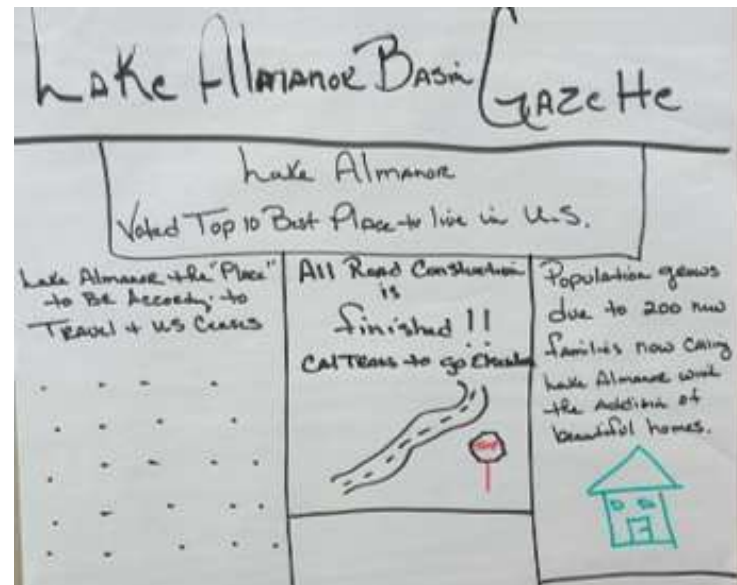 Lake Almanor Basin Gazette
Lake Almanor
Voted Top 10 Best Place to live in U.S.
Lake Almanor the "Place"
to Be According to
Travel + US Census
All Road Construction
is
finished !!
CalTrans to go
Population grows
due to 200 new
families now calling
Lake Almanor
the addition of
beautiful homes.